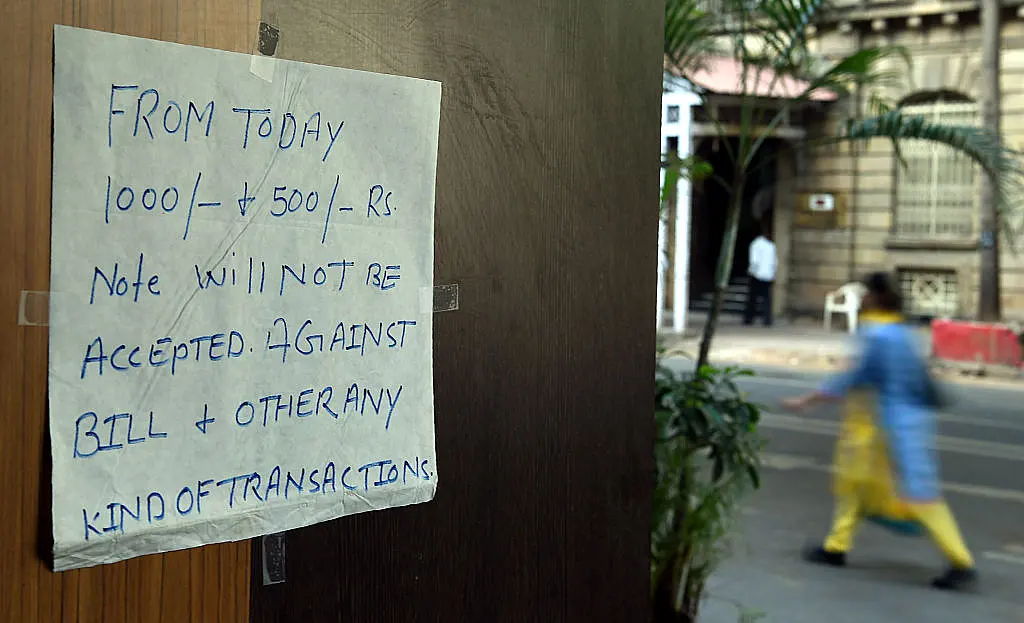 FROM TODAY
1000/- + 500/- Rs.
Note Will NOT BE
ACCEPTED. AGAINST
BILL + OTHER ANY
KIND OF TRANSACTIONS.